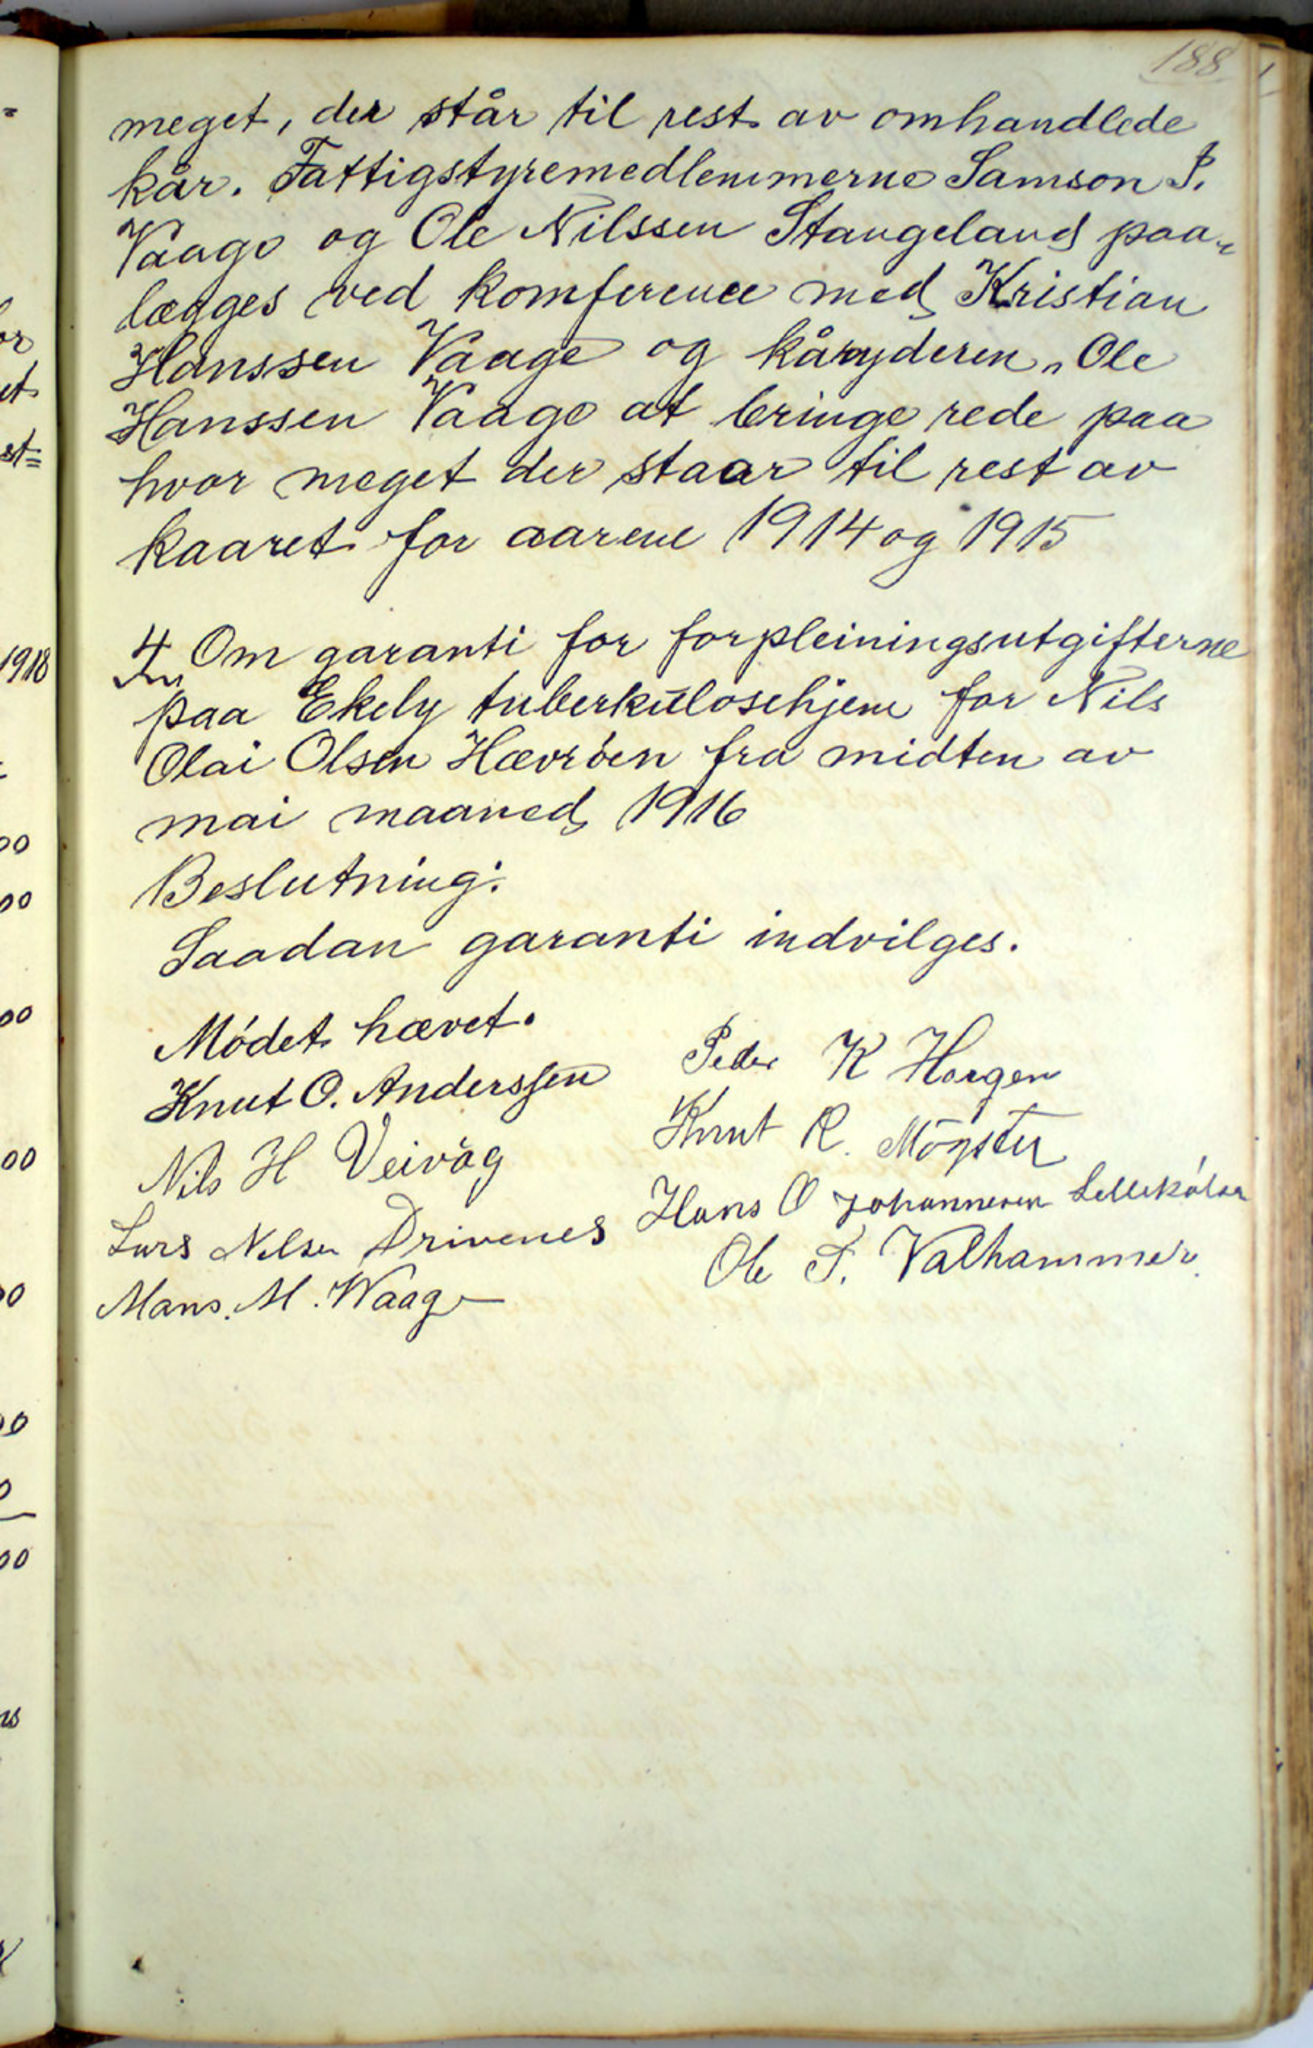 188
meget, der står til rest av omhandlede
kår. Fattigstyremedlemmerne Samson P.
Vaage og Ole Nilssen Stangeland paa-
lægges ved komference med Kristian
Hanssen Vaage og kåryderen, Ole
Hanssen Vaage at bringe rede paa
hvor meget der staar til rest av
kaaret for aarene 1914 og 1915
4 Om garanti for forpleiningsutgifterne
paa Ekely tuberkulosehjem for Nils
Olai Olsen Hævröen fra midten av
mai maaned 1916
Beslutning:
Saadan garanti indvilges.
Mödet hævet.
Knut O. Anderssen
Nils H Veivåg
Lars Nilsen Drivenes
Mans. M. Waage
Peder K Horgen
Knut R. Mögster
Hans O Johannesen
Ole T. Valhammer.
1918